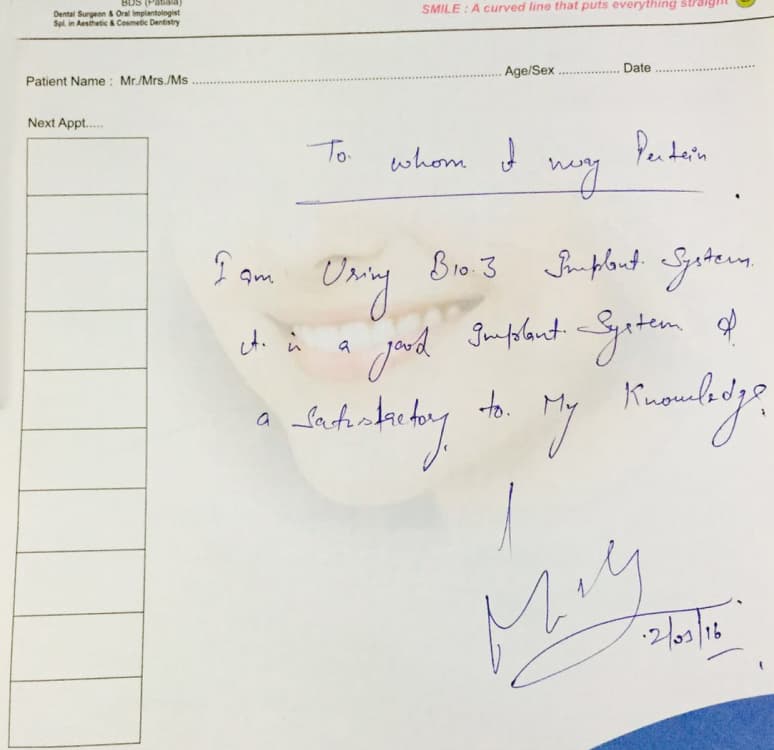 BDS (Patiala)
Dental Surgeon & Oral Implantologist
Spl. in Aesthetic & Cosmetic Dentistry
SMILE : A curved line that puts everything straight
Patient Name : Mr./Mrs./Ms ........ Age/Sex ........ Date ........
Next Appt.....
To. whom I may Pertein
I am Using BIO.3 Implant System.
it is a good Implant System &
a Satisfactory to. My Knowledge.
2/03/16